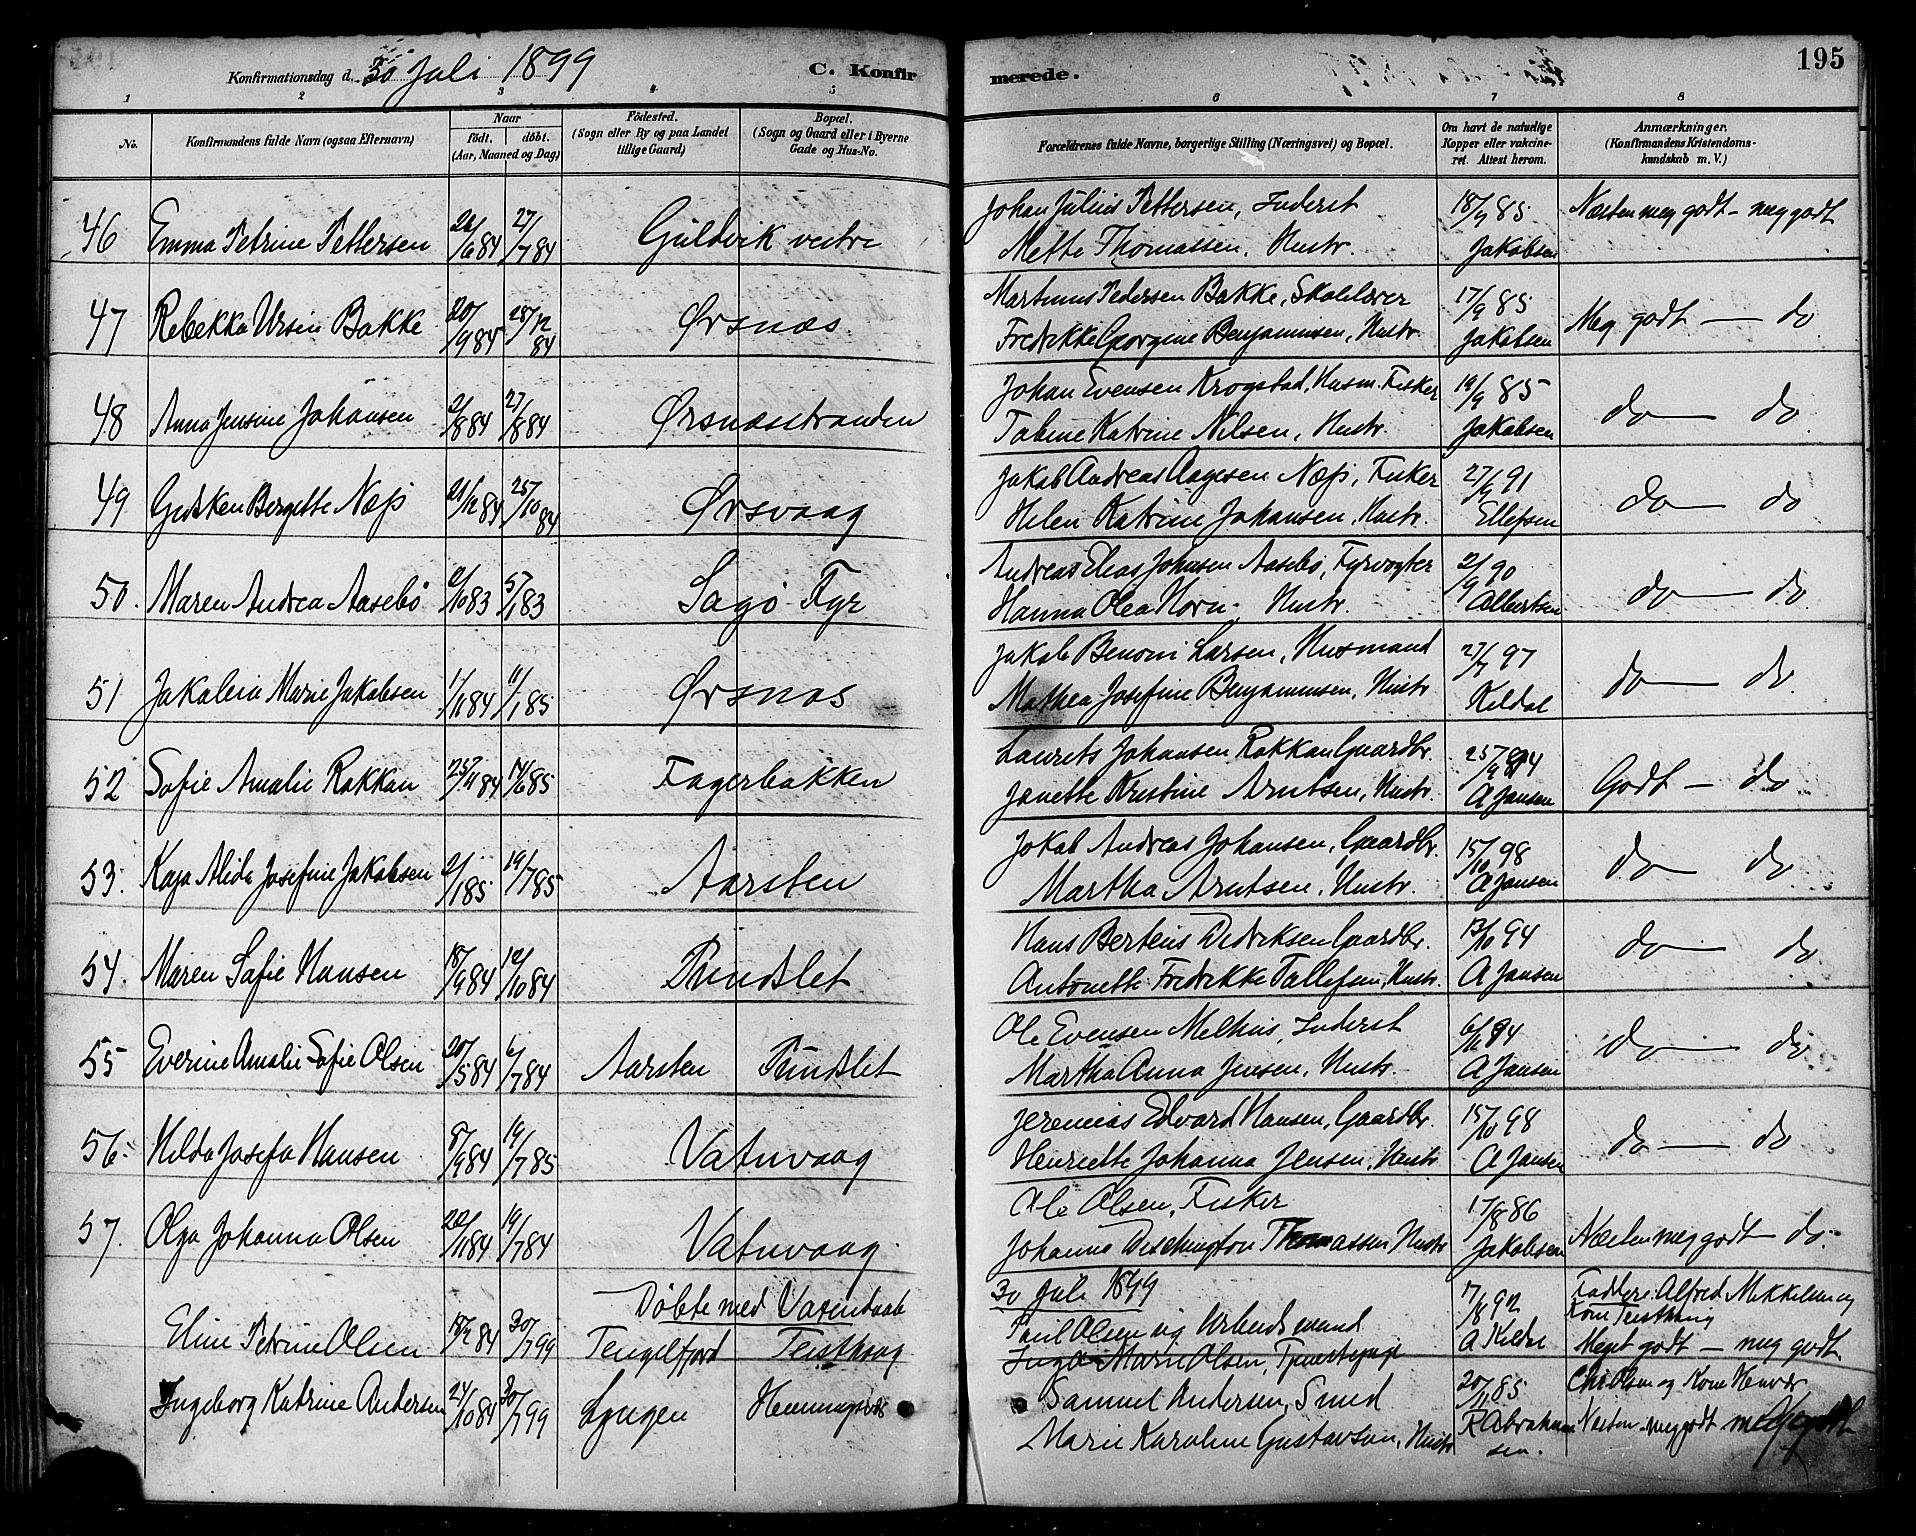 Konfirmationsdag d. 30 Juli 1899
C. Konfirmerede.
195
1 2 3 4 5 6 7 8
No.
Konfirmandens fulde Navn (ogsaa Efternavn)
Naar
født. døbt.
(Aar, Maaned og Dag)
Fødested.
(Sogn eller By og paa Landet
tillige Gaard)
Bopæl.
(Sogn og Gaard eller i Byerne
Gade og Hus-No.
Forældrenes fulde Navne, borgerlige Stilling (Næringsvei) og Bopæl.
Om havt de naturlige
Kopper eller vakcine-
ret. Attest herom.
Anmærkninger.
(Konfirmandens Kristendoms-
kundskab m. V.)
46 Emma Petrine Pettersen 27/7 84 Guldvik vestre
Johan Julius Pettersen, Inderst 18/9 85 Næsten meg godt - meg godt
Mette Thomassen, Hustr. Jakobsen
47 Rebekka Ursin Bakke 20/9 84 28/12 84 Ørsnæs.
Martinus Pedersen Bakke, Skolelærer 17/9 85 Meg godt — do
Fredrikke Georgine Benjaminsen, Hustr. Jakobsen
48 Anna Jensine Johansen 2/8 84 27/8 84 Ørsnæsstranden
Johan Evensen Krogstad, Husm. Fisker 19/9 85 do — do
Tobine Katrine Nilsen, Hustr. Jakobsen
49 Bergitte Næss 25/10 84 Ørsvaag
Jakob Andreas Aagesen Næss, Fisker 27/9 91 do — do
Helen Katrine Johansen, Hustr. Ellefsen
50. Maren Andrea Aasebø 5/1 83 Sagø Fyr
Andreas Elias Johnsen Aasebø, Fyrvogter 2/9 90 do — do
Hanna Olea Horn. Hustr. Albertsen
51 Jakobia Marie Jakobsen 1/11 84 11/1 85 Ørsnæs
Jakob Benoni Larsen, Husmand 27/7 97 do — do
Mathea Josefine Benjaminsen, Hustr Keldal
52 Sofie Amalie Rakkan 25/11 84 14/6 85 Fagerbakken
Laurits Johansen Rakkan Gaardbr. Godt — do
Janette Kristine Arntsen, Hustr. A Jansen
53. Kaja Alida Josefine Jakobsen 2/1 85 19/7 85 Aarsten
Jakob Andreas Johansen, Gaardbr. 15/10 98 do — do
Martha Arntsen, Hustr. A Jansen
54. Maren Sofie Hansen 18/9 84 12/10 84 Pundslet
Hans Bertius Didriksen Gaardbr. 13/10 94 do — do
Antonette Fredrikke Tallefsen, Hustr. A Jansen
55 Everine Amalie Sofie Olsen 20/5 84 6/7 84 Aarsten Pundslet
Ole Evensen Melhus, Inderst 94 do — do
Martha Anna Jensen, Hustr. A Jansen
56. Hilda Josefa Hansen 8/9 84 19/7 85 Vatnvaag
Jeremias Edvard Hansen, Gaardbr. 15/10 98 do — do
Henriette Johanna Jensen, Hustr A Jansen
57. Olga Johanna Olsen 19/7 84 Vatnvaag.
Ole Olsen, Fisker 17/8 86
Johanna Deschington Thomassen Hustr Jakobsen Næsten meg godt - do.
Døbte med Vaxendaab 30 Juli 1899
Eline Petrine Olsen 30/7 99 Tengelfjord
Paul Olsen ug Arbeidsmand 92 Faddere Alfred Mikkelsen og
Inga Marie Olsen, Tjenestepige A Keldal Kone
Meget godt — meg godt
Ingeborg Katrine Andersen 24/10 84 30/7 99 Lyngen Henningsvær
Samuel Andersen, Smed 20/11 85 Chr Olsen og Kone Henvær
Marie Karoline Gustavson, Hustr R Abraham Næsten meg godt meg godt
sen.